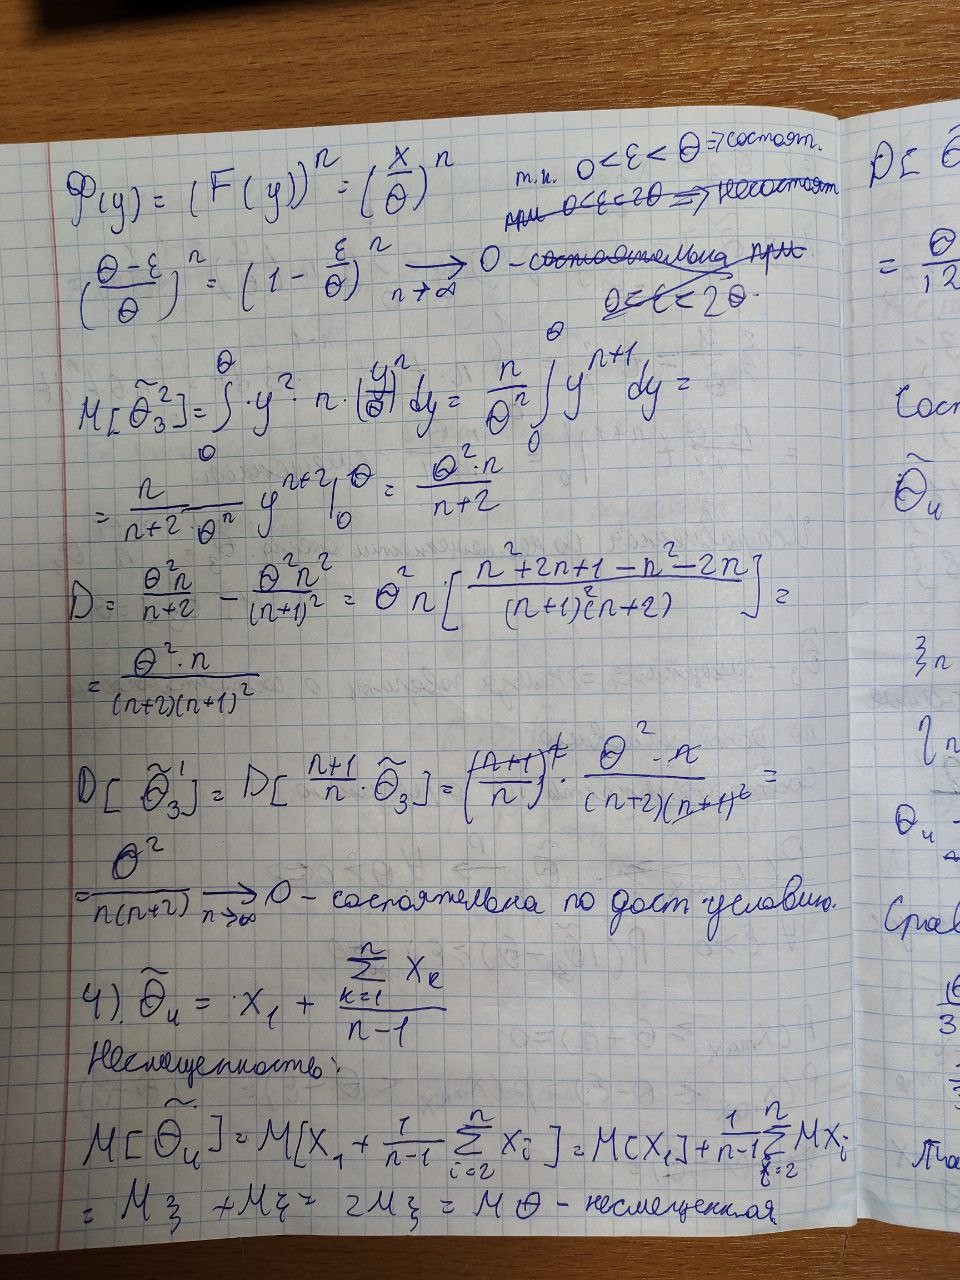 Φ(y) = (F(y))ⁿ = (x/θ)ⁿ
т.к. 0<ε<θ ⇒ состоят.
при 0<ε<2θ ⇒ несостоят
((θ-ε)/θ)ⁿ = (1 - ε/θ)ⁿ →(n→∞) 0 - состоятельна при
0<ε<2θ.
M[θ̃₃²] = ∫₀^θ ·y²· n·(y/θ)ⁿ dy = n/θⁿ ∫₀^θ yⁿ⁺¹ dy =
= n/(n+2 · θⁿ) yⁿ⁺² |₀^θ = θ²·n/(n+2)
D = θ²n/(n+2) - θ²n²/(n+1)² = θ²n [(n²+2n+1-n²-2n)/((n+1)²(n+2))] =
= θ²·n/((n+2)(n+1)²)
D[θ̃₃'] = D[(n+1)/n · θ̃₃] = ((n+1)/n)² · θ²·n/((n+2)(n+1)²) =
= θ²/(n(n+2)) →(n→∞) 0 - состоятельна по дост условию.
4). θ̃₄ = ·x₁ + (∑ₖ₌₁ⁿ xₖ)/(n-1)
Несмещенность:
M[θ̃₄] = M[x₁ + 1/(n-1) ∑ᵢ₌₂ⁿ xᵢ] = M[x₁] + 1/(n-1) ∑ᵢ₌₂ⁿ Mxᵢ
= Mξ + Mξ = 2Mξ = Mθ - несмещенная
D[θ̃
= θ/12
Сост
θ̃₄
ξn
ηn
θ₄
Срав
16/3
1/3